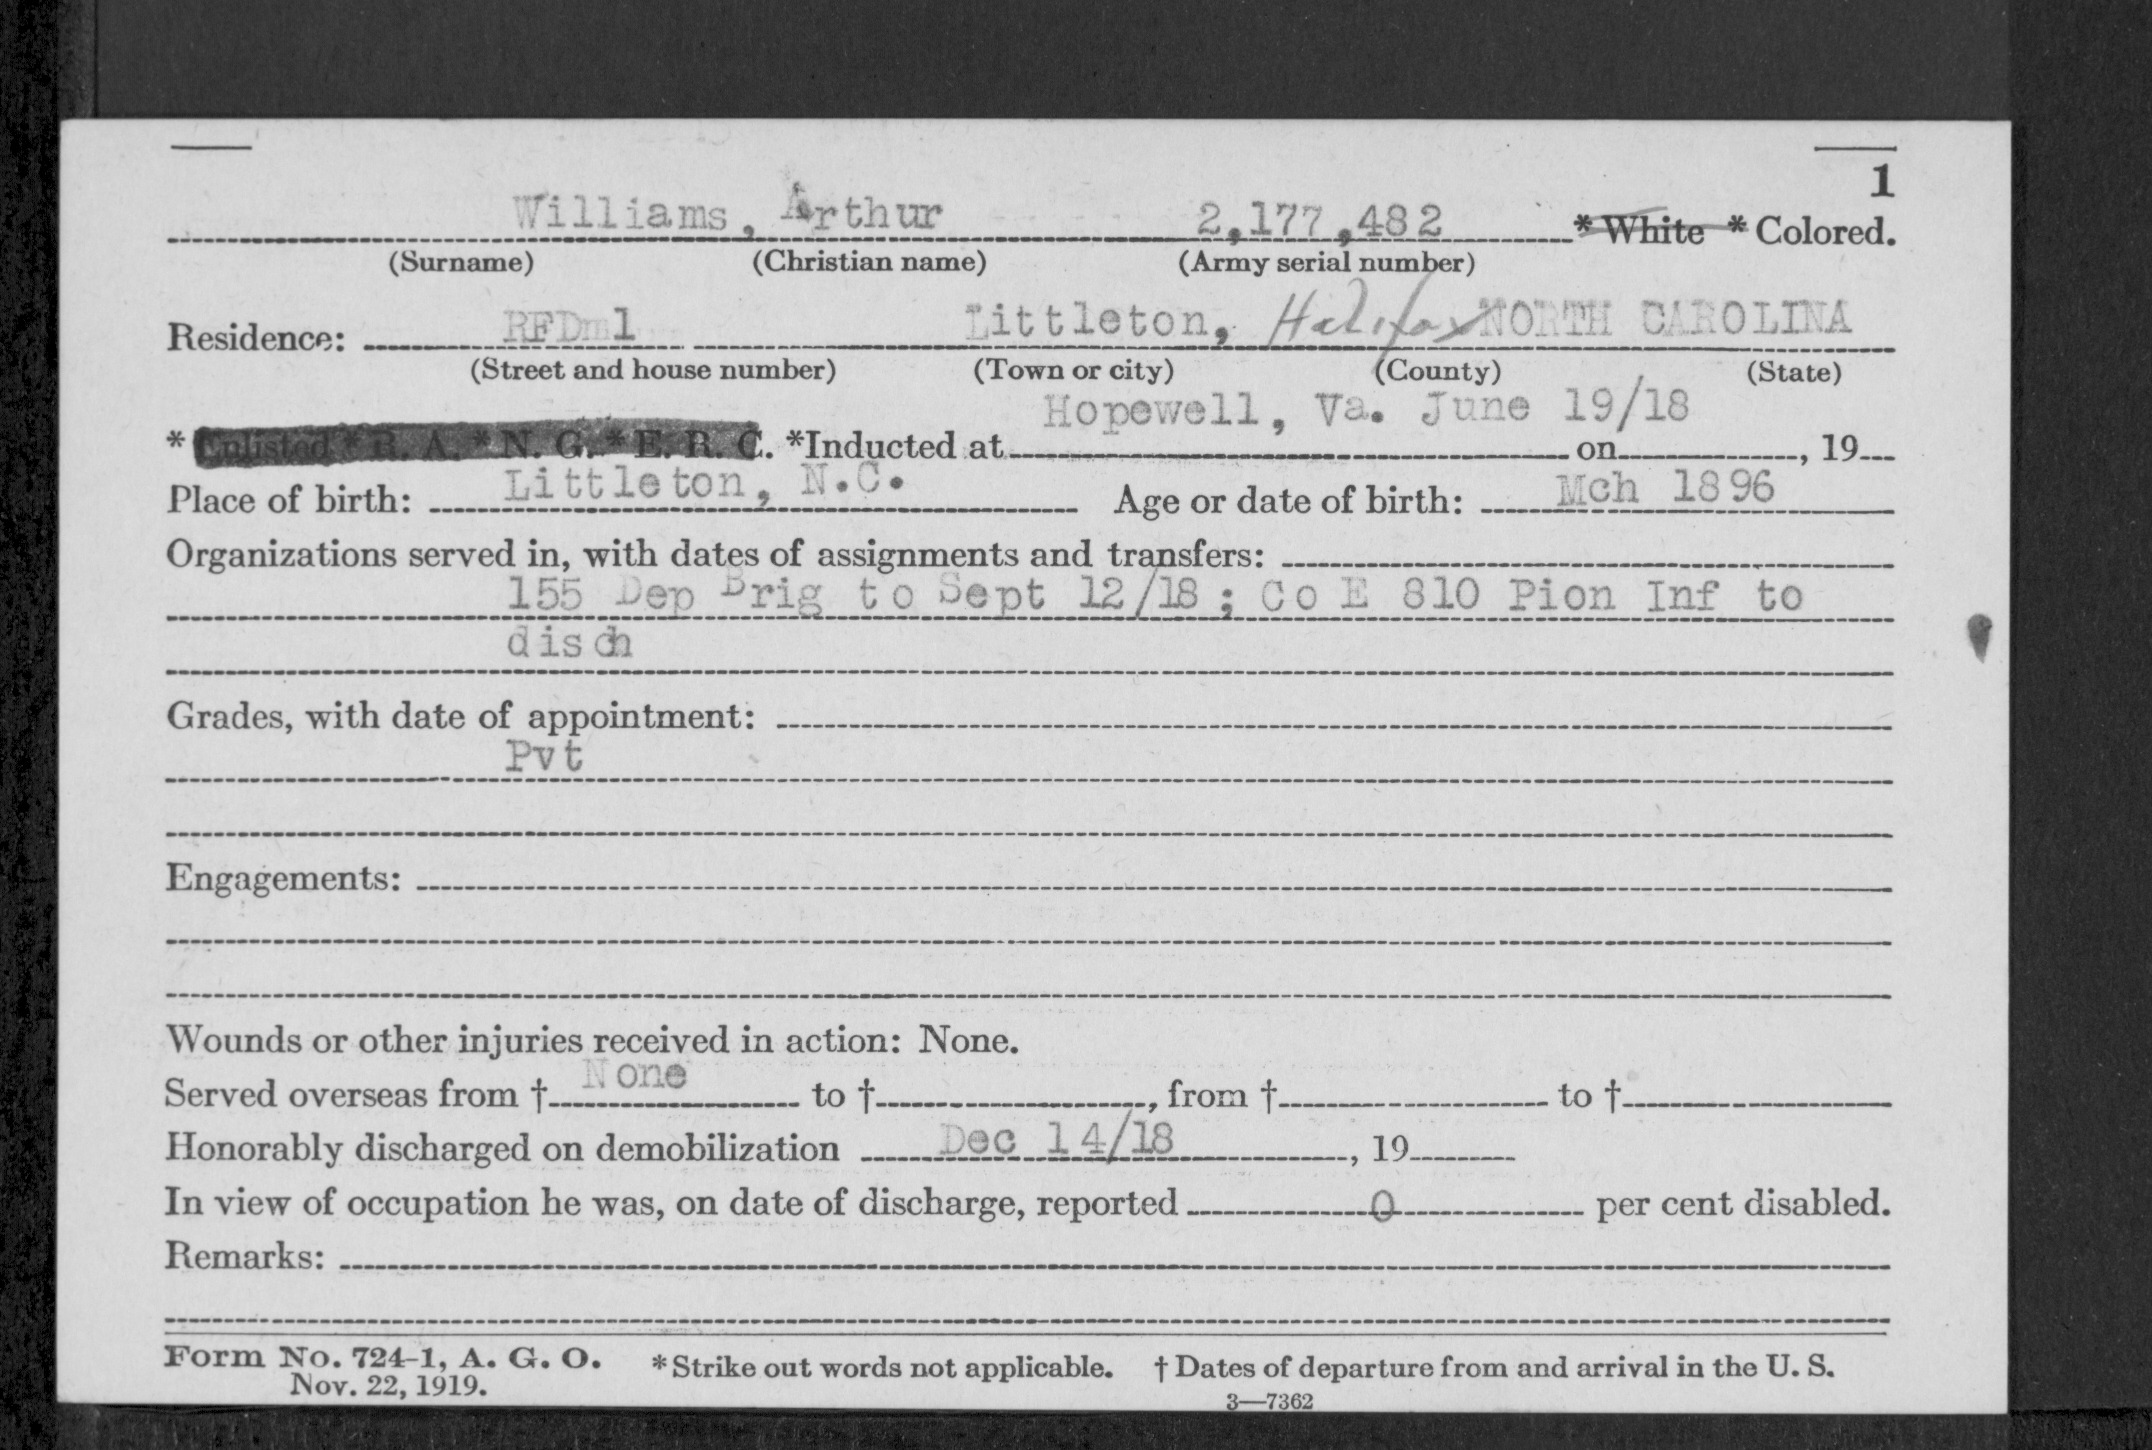 1
Williams, Arthur 2,177,482 * White * Colored.
(Surname) (Christian name) (Army serial number)
Residence: RFD 1 Littleton, Halifax NORTH CAROLINA
(Street and house number) (Town or city) (County) (State)
Hopewell, Va. June 19/18
* Enlisted * R. A. * N. G. * E. R. C. *Inducted at on , 19
Place of birth: Littleton, N.C. Age or date of birth: Mch 1896
Organizations served in, with dates of assignments and transfers:
155 Dep Brig to Sept 12/18; Co E 810 Pion Inf to
disch
Grades, with date of appointment:
Pvt
Engagements:
Wounds or other injuries received in action: None.
Served overseas from † None to † , from † to †
Honorably discharged on demobilization Dec 14/18 , 19
In view of occupation he was, on date of discharge, reported 0 per cent disabled.
Remarks:
Form No. 724-1, A. G. O. * Strike out words not applicable. † Dates of departure from and arrival in the U. S.
Nov. 22, 1919.
3—7362